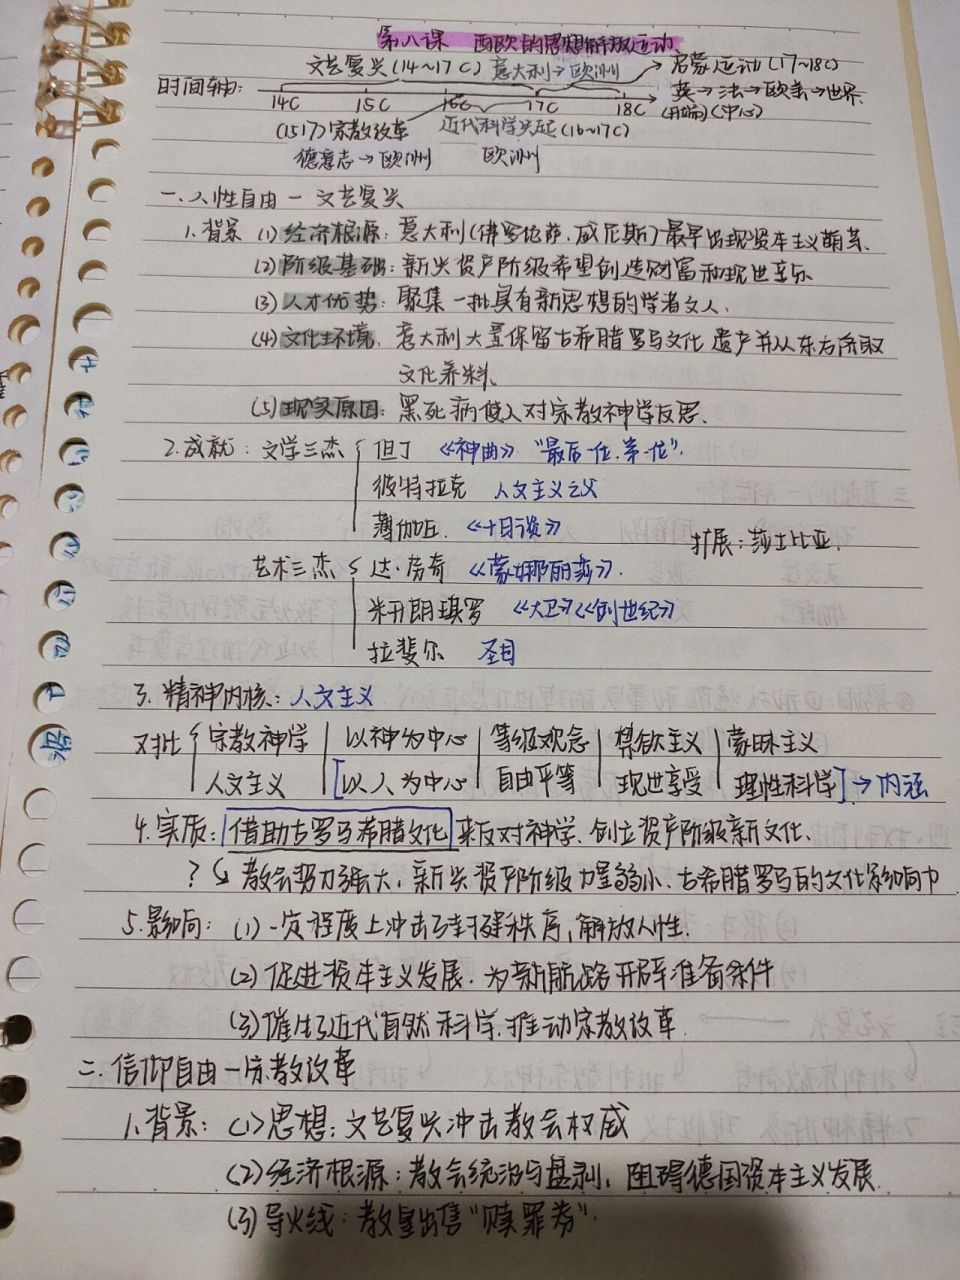 第八课 西欧的思想解放运动
文艺复兴(14~17C) 意大利→欧洲 启蒙运动(17~18C)
时间轴: 14C 15C 16C 17C 18C 英→法→欧美→世界
(开端)(中心)
(1517)宗教改革 近代科学兴起(16~17C)
德意志→欧洲 欧洲
一.人性自由—文艺复兴
1.背景 (1)经济根源:意大利(佛罗伦萨.威尼斯)最早出现资本主义萌芽.
(2)阶级基础:新兴资产阶级希望创造财富和现世享乐
(3)人才优势:聚集一批具有新思想的学者文人.
(4)文化环境.意大利大量保留古希腊罗马文化遗产并从东方汲取
文化养料.
(5)现实原因:黑死病使人对宗教神学反思.
2.成就:文学三杰 但丁《神曲》"最后一位.第一位".
彼特拉克 人文主义之父
薄伽丘.《十日谈》
扩展:莎士比亚.
艺术三杰 达·芬奇《蒙娜丽莎》.
米开朗琪罗《大卫》《创世纪》
拉斐尔 圣母
3.精神内核:人文主义
对比 宗教神学 以神为中心 等级观念 禁欲主义 蒙昧主义
人文主义 [以人为中心 自由平等 现世享受 理性科学]→内涵
4.实质:借助古罗马希腊文化来反对神学.创立资产阶级新文化.
?教会势力强大.新兴资产阶级力量弱小.古希腊罗马的文化影响力
5.影响:(1)一定程度上冲击了封建秩序,解放人性.
(2)促进资本主义发展.为新航路开辟准备条件
(3)催生了近代自然科学.推动宗教改革.
二.信仰自由—宗教改革
1.背景:(1)思想:文艺复兴冲击教会权威
(2)经济根源:教会统治与盘剥,阻碍德国资本主义发展.
(3)导火线:教皇出售"赎罪券".